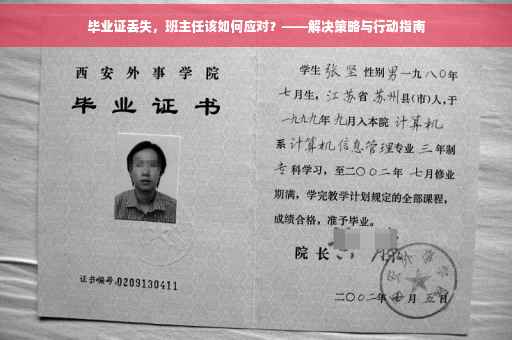 毕业证丢失，班主任该如何应对？——解决策略与行动指南
西安外事学院
毕业证书
证书编号:0209130411
学生 张坚 性别男一九八〇年
七月生，江苏省苏州县(市)人,于
一九九九年九月入本院 计算机
系计算机信息管理专业 三 年制
专科学习，至二〇〇二年 七月修业
期满，学完教学计划规定的全部课程，
成绩合格，准予毕业。
院长
二〇〇二年 月 五日